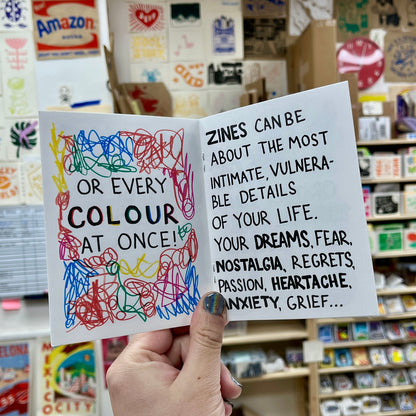 Amazon
OR EVERY
COLOUR
AT ONCE!
ZINES CAN BE
ABOUT THE MOST
INTIMATE, VULNERA-
BLE DETAILS
OF YOUR LIFE.
YOUR DREAMS, FEAR,
NOSTALGIA, REGRETS,
PASSION, HEARTACHE,
ANXIETY, GRIEF...
MEXICO
CITY